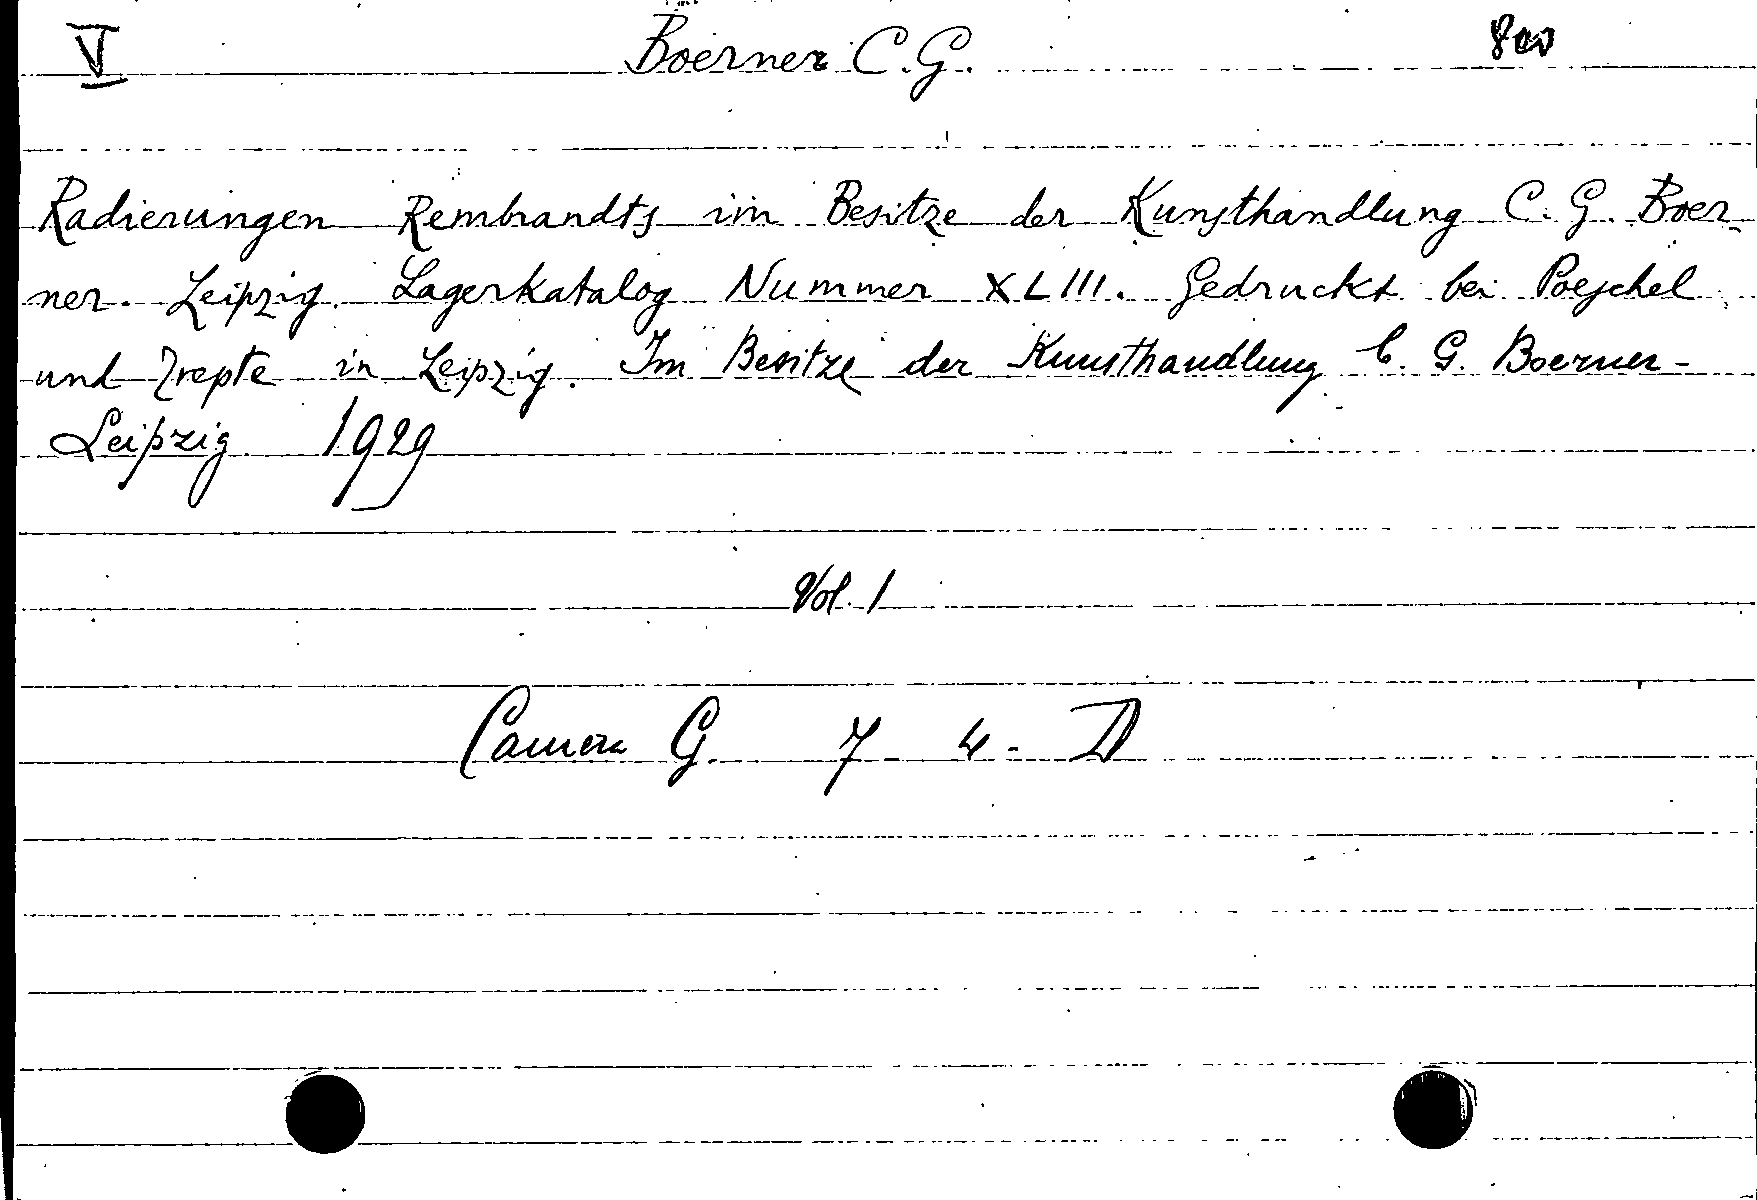 V Boerner C.G. 800
Radierungen Rembrandts im Besitze der Kunsthandlung C. G. Boer-
ner. Leipzig. Lagerkatalog Nummer XLIII. Gedruckt bei Poeschel
und Trepte in Leipzig. Im Besitze der Kunsthandlung C. G. Boerner-
Leipzig 1929
Vol. 1
Camera G. 7 - 4 - D